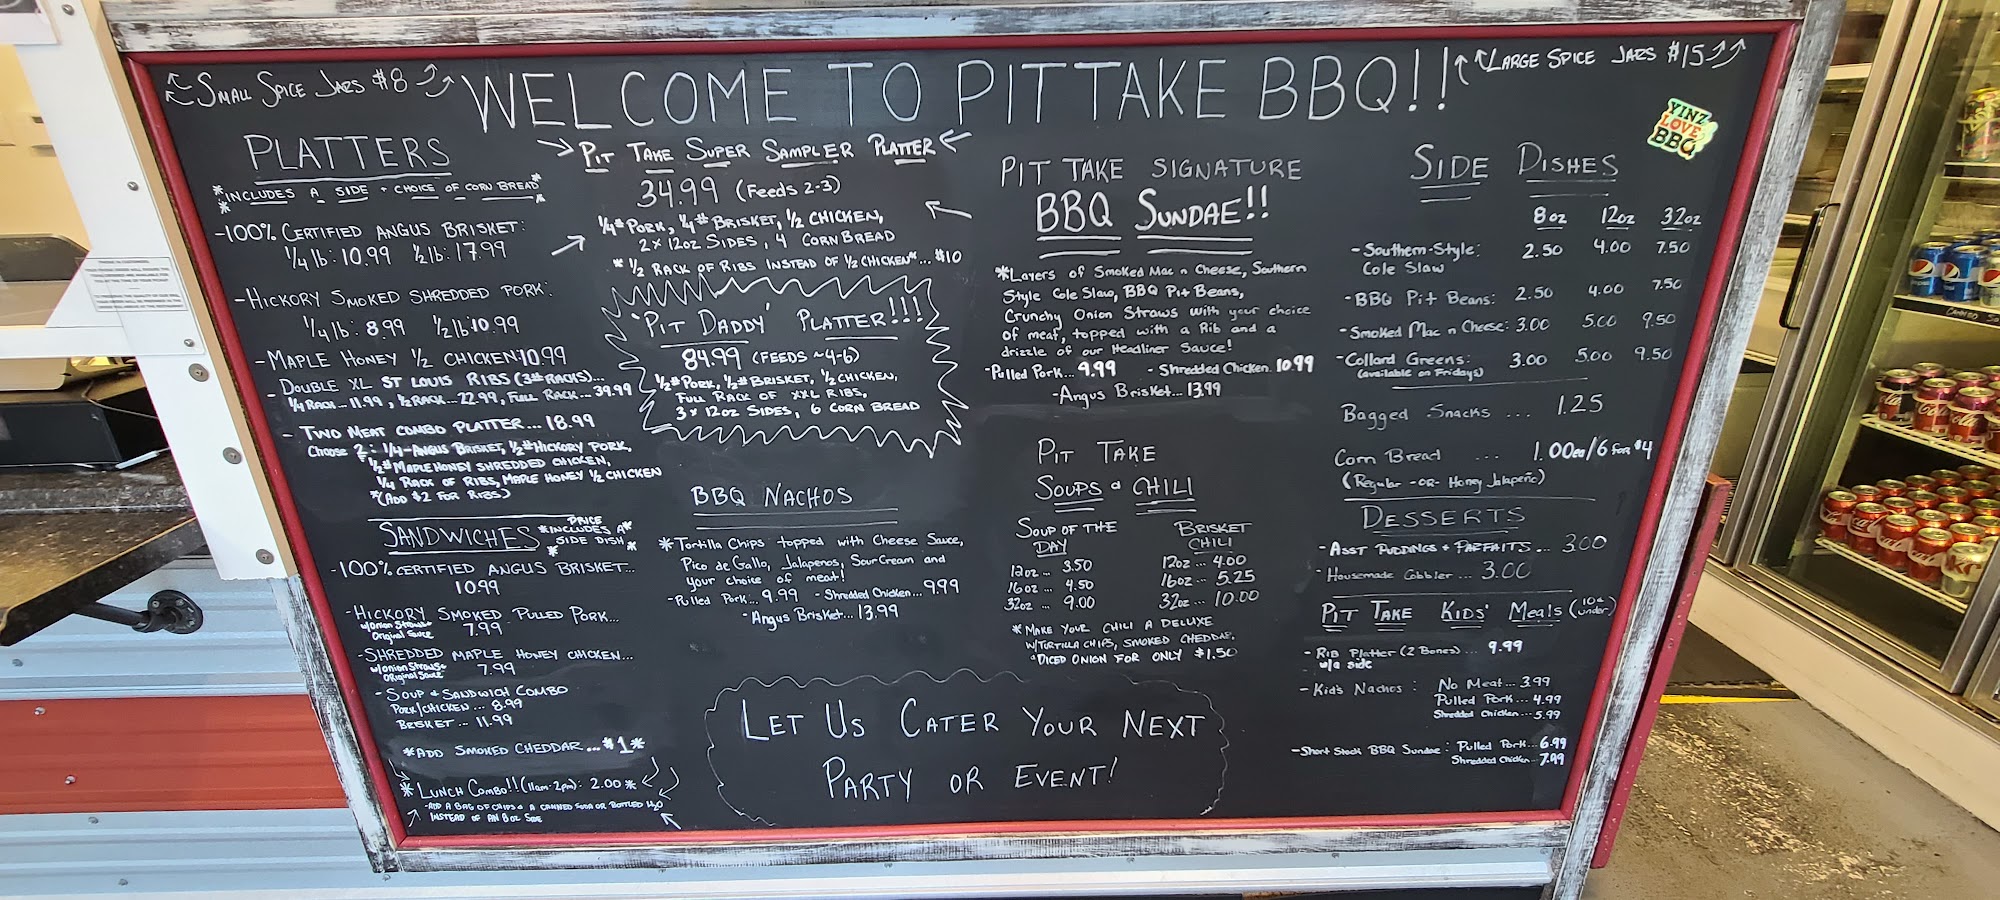 Small Spice Jars $8
WELCOME TO PIT TAKE BBQ!!
Large Spice Jars $15
YINZ
LOVE
BBQ
PLATTERS
*INCLUDES A SIDE + CHOICE OF CORN BREAD*
-100% CERTIFIED ANGUS BRISKET:
1/4 lb: 10.99 1/2 lb: 17.99
-HICKORY SMOKED SHREDDED PORK:
1/4 lb: 8.99 1/2 lb: 10.99
-MAPLE HONEY 1/2 CHICKEN: 10.99
- DOUBLE XL ST LOUIS RIBS (3# RACKS)...
1/4 RACK... 11.99, 1/2 RACK... 22.99, FULL RACK... 39.99
- TWO MEAT COMBO PLATTER... 18.99
Choose 2: 1/4-ANGUS BRISKET, 1/2# HICKORY PORK,
1/2# MAPLE HONEY SHREDDED CHICKEN,
1/4 RACK OF RIBS, MAPLE HONEY 1/2 CHICKEN
*(ADD $2 FOR RIBS)
SANDWICHES *PRICE
INCLUDES A*
*SIDE DISH*
-100% CERTIFIED ANGUS BRISKET...
10.99
-HICKORY SMOKED PULLED PORK...
w/onion Straws+
Original Sauce 7.99
-SHREDDED MAPLE HONEY CHICKEN...
w/onion Straws+
Original Sauce 7.99
-SOUP & SANDWICH COMBO
PORK/CHICKEN... 8.99
BRISKET... 11.99
*ADD SMOKED CHEDDAR... $1*
*LUNCH COMBO!! (11am-2pm): 2.00*
-ADD A BAG OF CHIPS & A CANNED SODA OR BOTTLED H2O
INSTEAD OF AN 8 OZ SIDE
PIT TAKE SUPER SAMPLER PLATTER
34.99 (Feeds 2-3)
1/4# PORK, 1/4# BRISKET, 1/2 CHICKEN,
2 x 12oz SIDES, 4 CORN BREAD
*1/2 RACK OF RIBS INSTEAD OF 1/2 CHICKEN*... $10
'PIT DADDY' PLATTER!!!
84.99 (FEEDS ~4-6)
1/2# PORK, 1/2# BRISKET, 1/2 CHICKEN,
FULL RACK OF XXL RIBS,
3 x 12oz SIDES, 6 CORN BREAD
BBQ NACHOS
*Tortilla Chips topped with Cheese Sauce,
Pico de Gallo, Jalapenos, Sour Cream and
your choice of meat!
-Pulled Pork... 9.99 - Shredded Chicken... 9.99
-Angus Brisket... 13.99
PIT TAKE SIGNATURE
BBQ SUNDAE!!
*Layers of Smoked Mac n Cheese, Southern
Style Cole Slaw, BBQ Pit Beans,
Crunchy Onion Straws with your choice
of meat, topped with a Rib and a
drizzle of our Headliner Sauce!
-Pulled Pork... 9.99 - Shredded Chicken. 10.99
-Angus Brisket... 13.99
PIT TAKE
SOUPS & CHILI
SOUP OF THE
DAY
12oz ... 3.50
16oz ... 4.50
32oz ... 9.00
BRISKET
CHILI
12oz ... 4.00
16oz ... 5.25
32oz ... 10.00
*MAKE YOUR CHILI A DELUXE
W/TORTILLA CHIPS, SMOKED CHEDDAR,
& DICED ONION FOR ONLY $1.50
LET US CATER YOUR NEXT
PARTY OR EVENT!
SIDE DISHES
8oz 12oz 32oz
-Southern-Style: 2.50 4.00 7.50
Cole Slaw
-BBQ Pit Beans: 2.50 4.00 7.50
-Smoked Mac n Cheese: 3.00 5.00 9.50
-Collard Greens: 3.00 5.00 9.50
(available on Fridays)
Bagged Snacks ... 1.25
Corn Bread ... 1.00ea/6 for $4
(Regular -OR- Honey Jalapeño)
DESSERTS
-ASST PUDDINGS + PARFAITS... 3.00
-Housemade Cobbler... 3.00
PIT TAKE KIDS' Meals (10& under)
- Rib Platter (2 Bones)... 9.99
w/a side
- Kid's Nachos: No Meat... 3.99
Pulled Pork... 4.99
Shredded Chicken... 5.99
-Short Stack BBQ Sundae: Pulled Pork... 6.99
Shredded Chicken.. 7.99